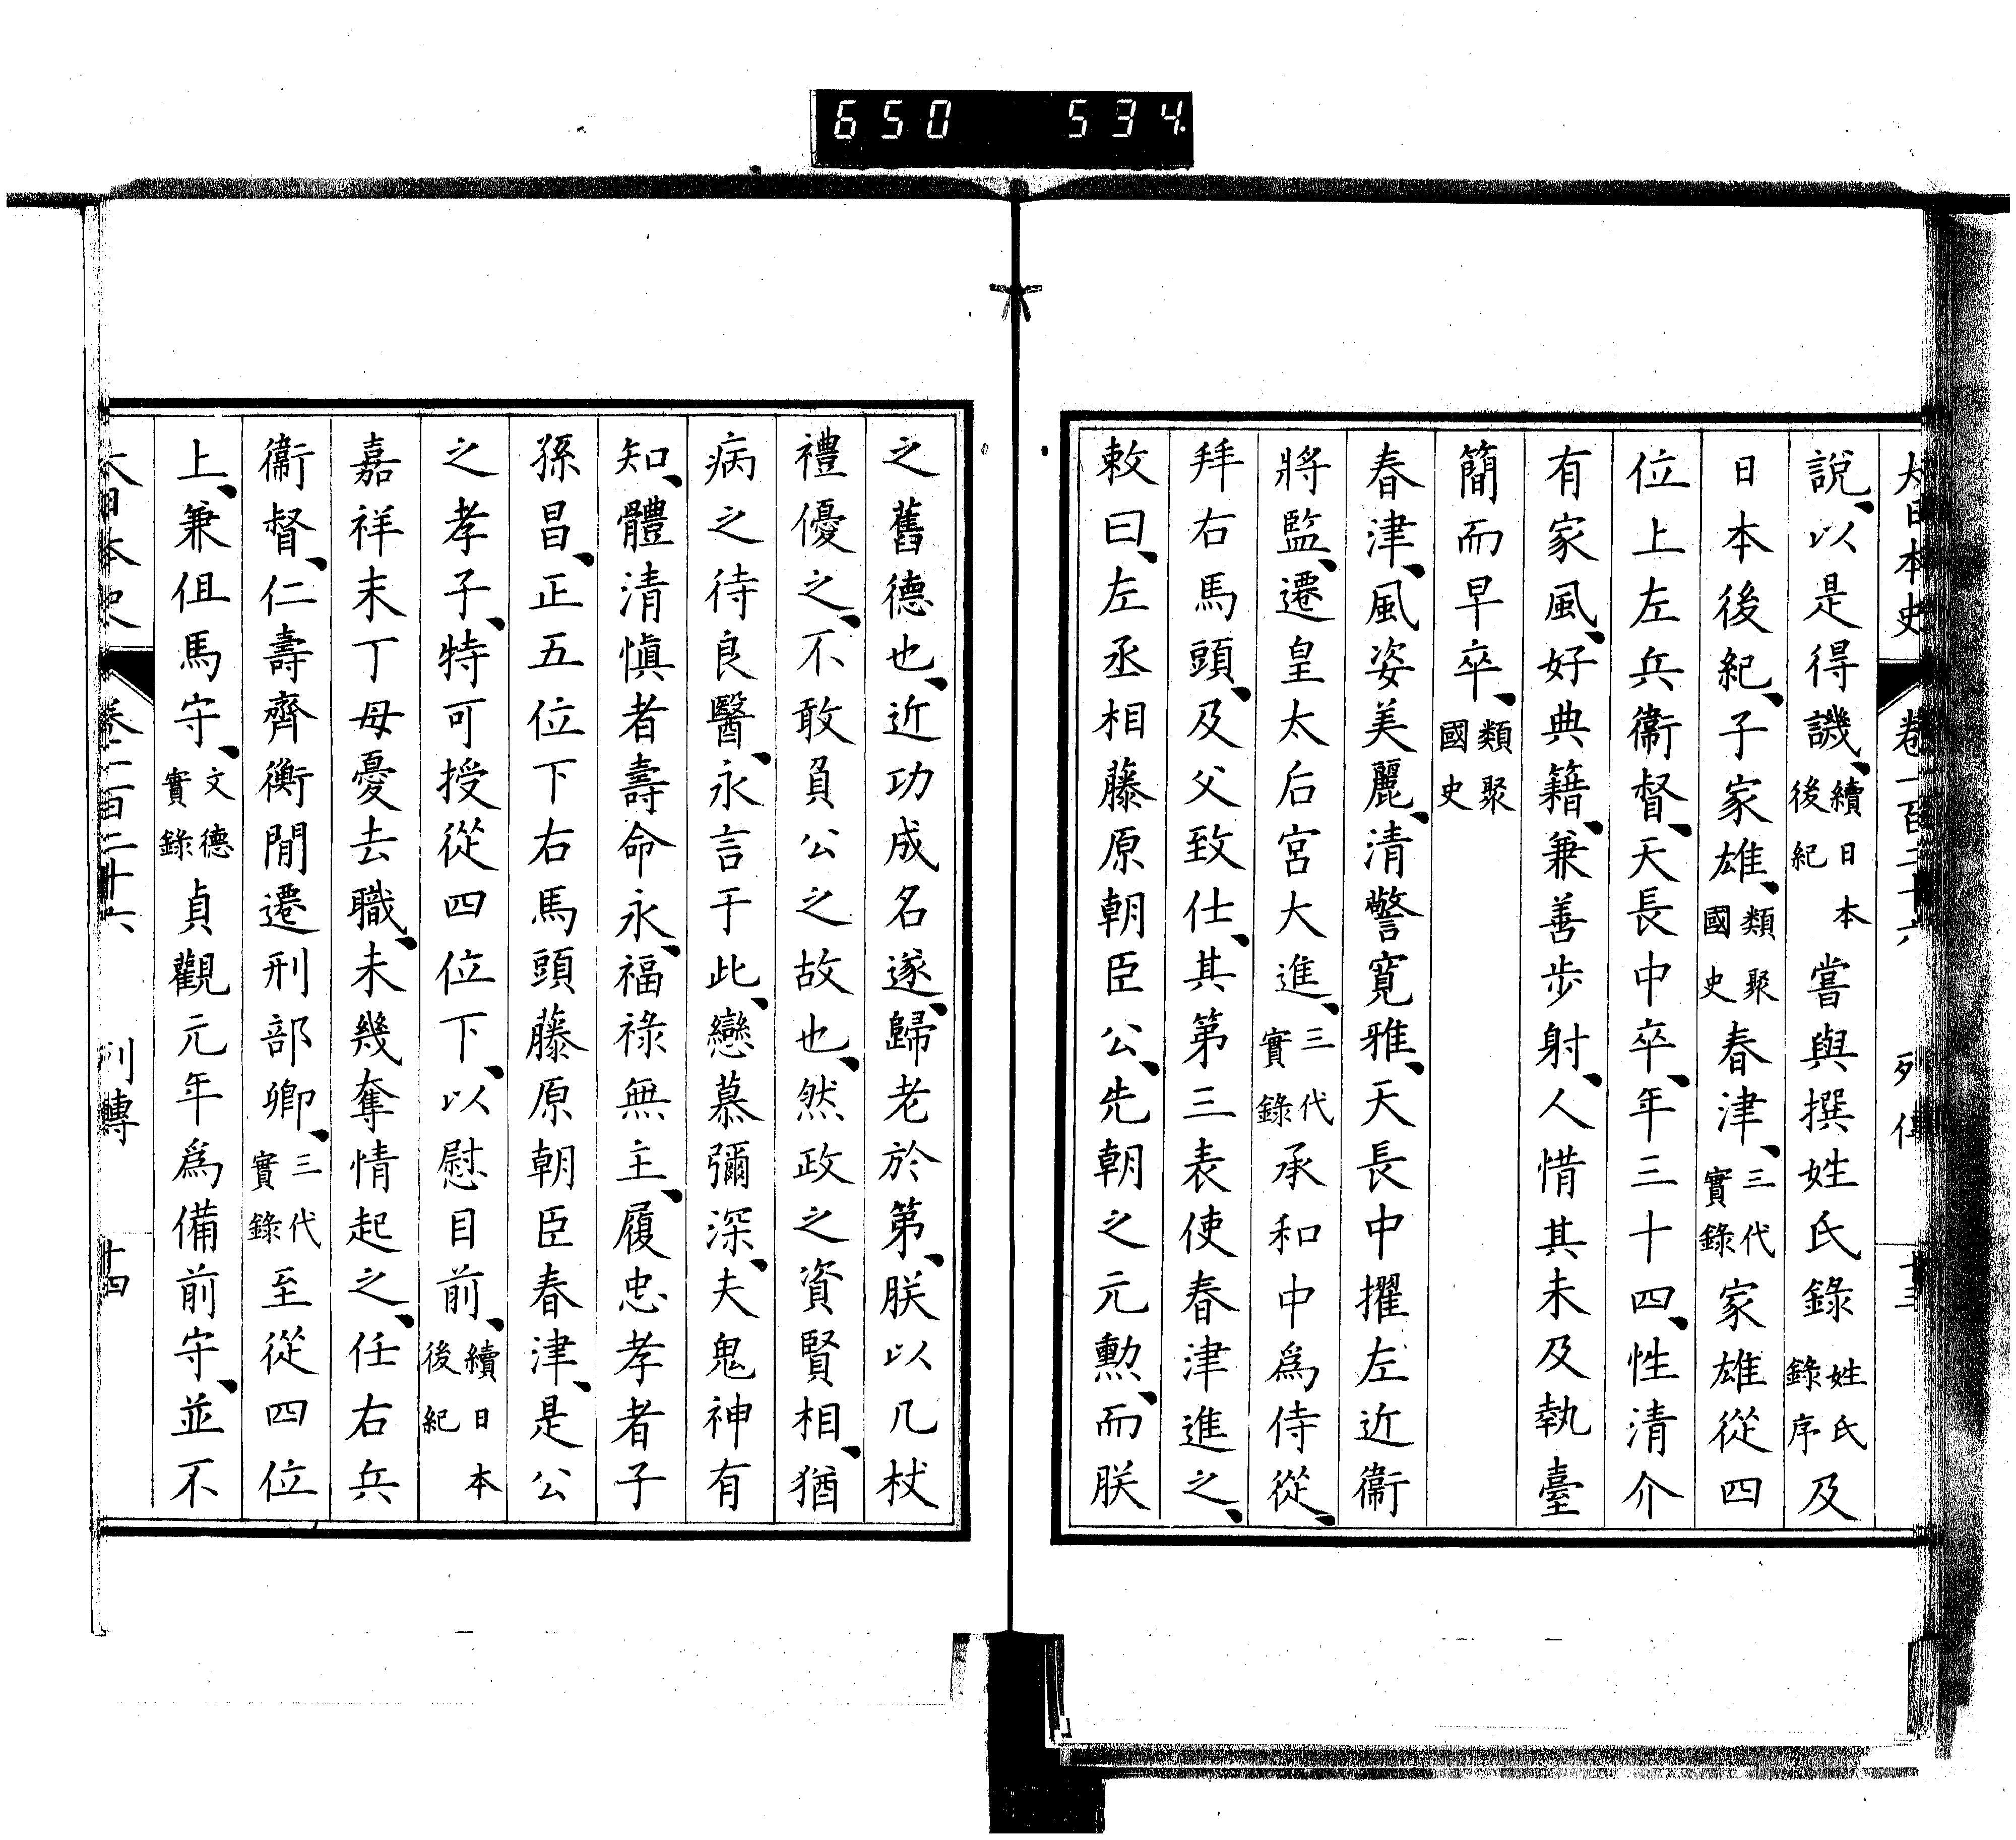 650 534
大日本史 卷一百二十六 列傳 十三
說、以是得譏、續日本後紀嘗與撰姓氏錄姓氏錄序及
日本後紀、子家雄、類聚國史春津、三代實錄家雄從四
位上左兵衞督、天長中卒、年三十四、性清介
有家風、好典籍、兼善步射、人惜其未及執臺
簡而早卒、類聚國史
春津、風姿美麗、清警寬雅、天長中擢左近衞
將監、遷皇太后宮大進、三代實錄承和中爲侍從、
拜右馬頭、及父致仕、其第三表使春津進之、
敕曰、左丞相藤原朝臣公、先朝之元勲、而朕
之舊德也、近功成名遂、歸老於第、朕以几杖
禮優之、不敢負公之故也、然政之資賢相、猶
病之待良醫、永言于此、戀慕彌深、夫鬼神有
知、體清愼者壽命永、福祿無主、履忠孝者子
孫昌、正五位下右馬頭藤原朝臣春津、是公
之孝子、特可授從四位下、以慰目前、續日本後紀
嘉祥末丁母憂去職、未幾奪情起之、任右兵
衞督、仁壽齊衡閒遷刑部卿、三代實錄至從四位
上、兼伹馬守、文德實錄貞觀元年爲備前守、並不
大日本史 卷一百二十六 列傳 十四